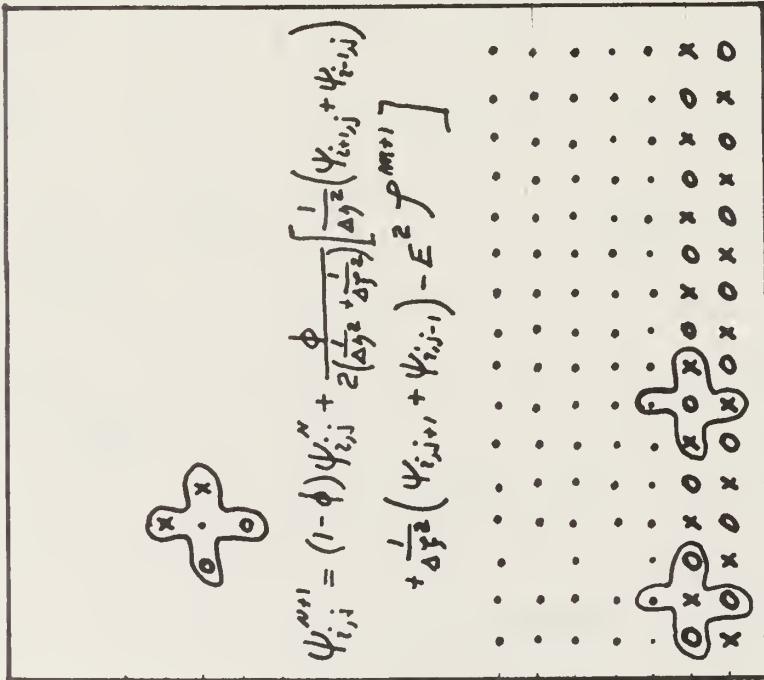 ψ_{i,j}^{N+1} = (1-ϕ)ψ_{i,j}^{N} + ϕ/(2(1/Δη² + 1/Δξ²)) [1/Δη² (ψ_{i+1,j} + ψ_{i-1,j})
+ 1/Δξ² (ψ_{i,j+1} + ψ_{i,j-1}) - E² ζ^{m+1}]